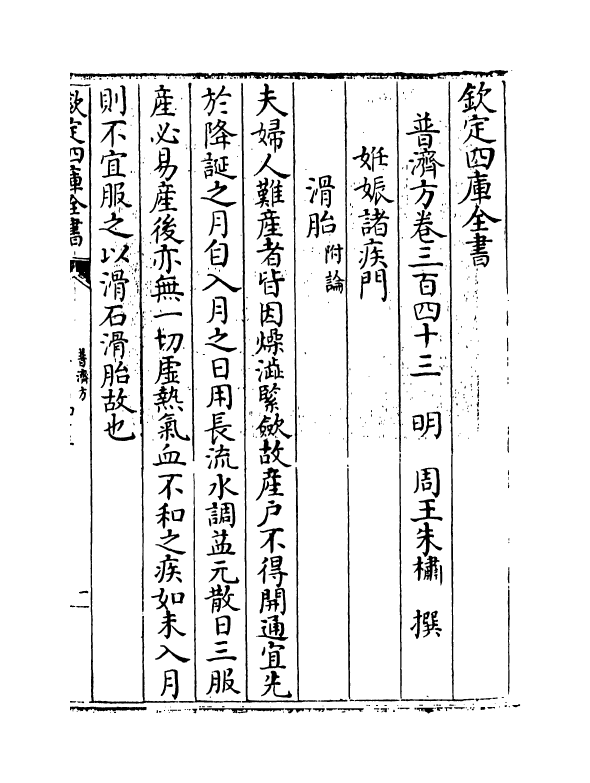 欽定四庫全書
普濟方卷三百四十三　明　周王朱橚　撰
姙娠諸疾門
滑胎附論
夫婦人難產者皆因燥澁緊斂故產户不得開通宜先
於降誕之月自入月之日用長流水調益元散日三服
產必易產後亦無一切虛熱氣血不和之疾如未入月
則不宜服之以滑石滑胎故也
欽定四庫全書
普濟方
一